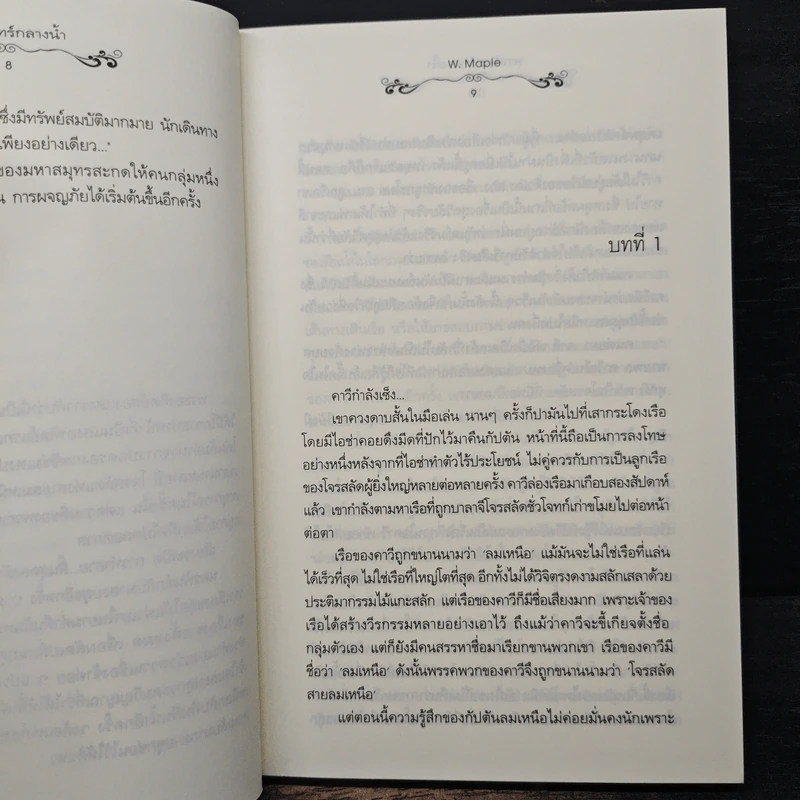 ทร์กลางน้ำ
8
ซึ่งมีทรัพย์สมบัติมากมาย นักเดินทาง
เพียงอย่างเดียว...'
ของมหาสมุทรสะกดให้คนกลุ่มหนึ่ง
น การผจญภัยได้เริ่มต้นขึ้นอีกครั้ง
W. Maple
9
บทที่ 1
คาวีกำลังเซ็ง...
เขาควงดาบสั้นในมือเล่น นานๆ ครั้งก็ปามันไปที่เสากระโดงเรือ
โดยมีไอซ่าคอยดึงมีดที่ปักไว้มาคืนกัปตัน หน้าที่นี้ถือเป็นการลงโทษ
อย่างหนึ่งหลังจากที่ไอซ่าทำตัวไร้ประโยชน์ ไม่คู่ควรกับการเป็นลูกเรือ
ของโจรสลัดผู้ยิ่งใหญ่หลายต่อหลายครั้ง คาวีล่องเรือมาเกือบสองสัปดาห์
แล้ว เขากำลังตามหาเรือที่ถูกบาลาจีโจรสลัดชั่วโจทก์เก่าขโมยไปต่อหน้า
ต่อตา
เรือของคาวีถูกขนานนามว่า 'ลมเหนือ' แม้มันจะไม่ใช่เรือที่แล่น
ได้เร็วที่สุด ไม่ใช่เรือที่ใหญ่โตที่สุด อีกทั้งไม่ได้วิจิตรงดงามสลักเสลาด้วย
ประติมากรรมไม้แกะสลัก แต่เรือของคาวีก็มีชื่อเสียงมาก เพราะเจ้าของ
เรือได้สร้างวีรกรรมหลายอย่างเอาไว้ ถึงแม้ว่าคาวีจะขี้เกียจตั้งชื่อ
กลุ่มตัวเอง แต่ก็ยังมีคนสรรหาชื่อมาเรียกขานพวกเขา เรือของคาวีมี
ชื่อว่า 'ลมเหนือ' ดังนั้นพรรคพวกของคาวีจึงถูกขนานนามว่า 'โจรสลัด
สายลมเหนือ'
แต่ตอนนี้ความรู้สึกของกัปตันลมเหนือไม่ค่อยมั่นคงนักเพราะ